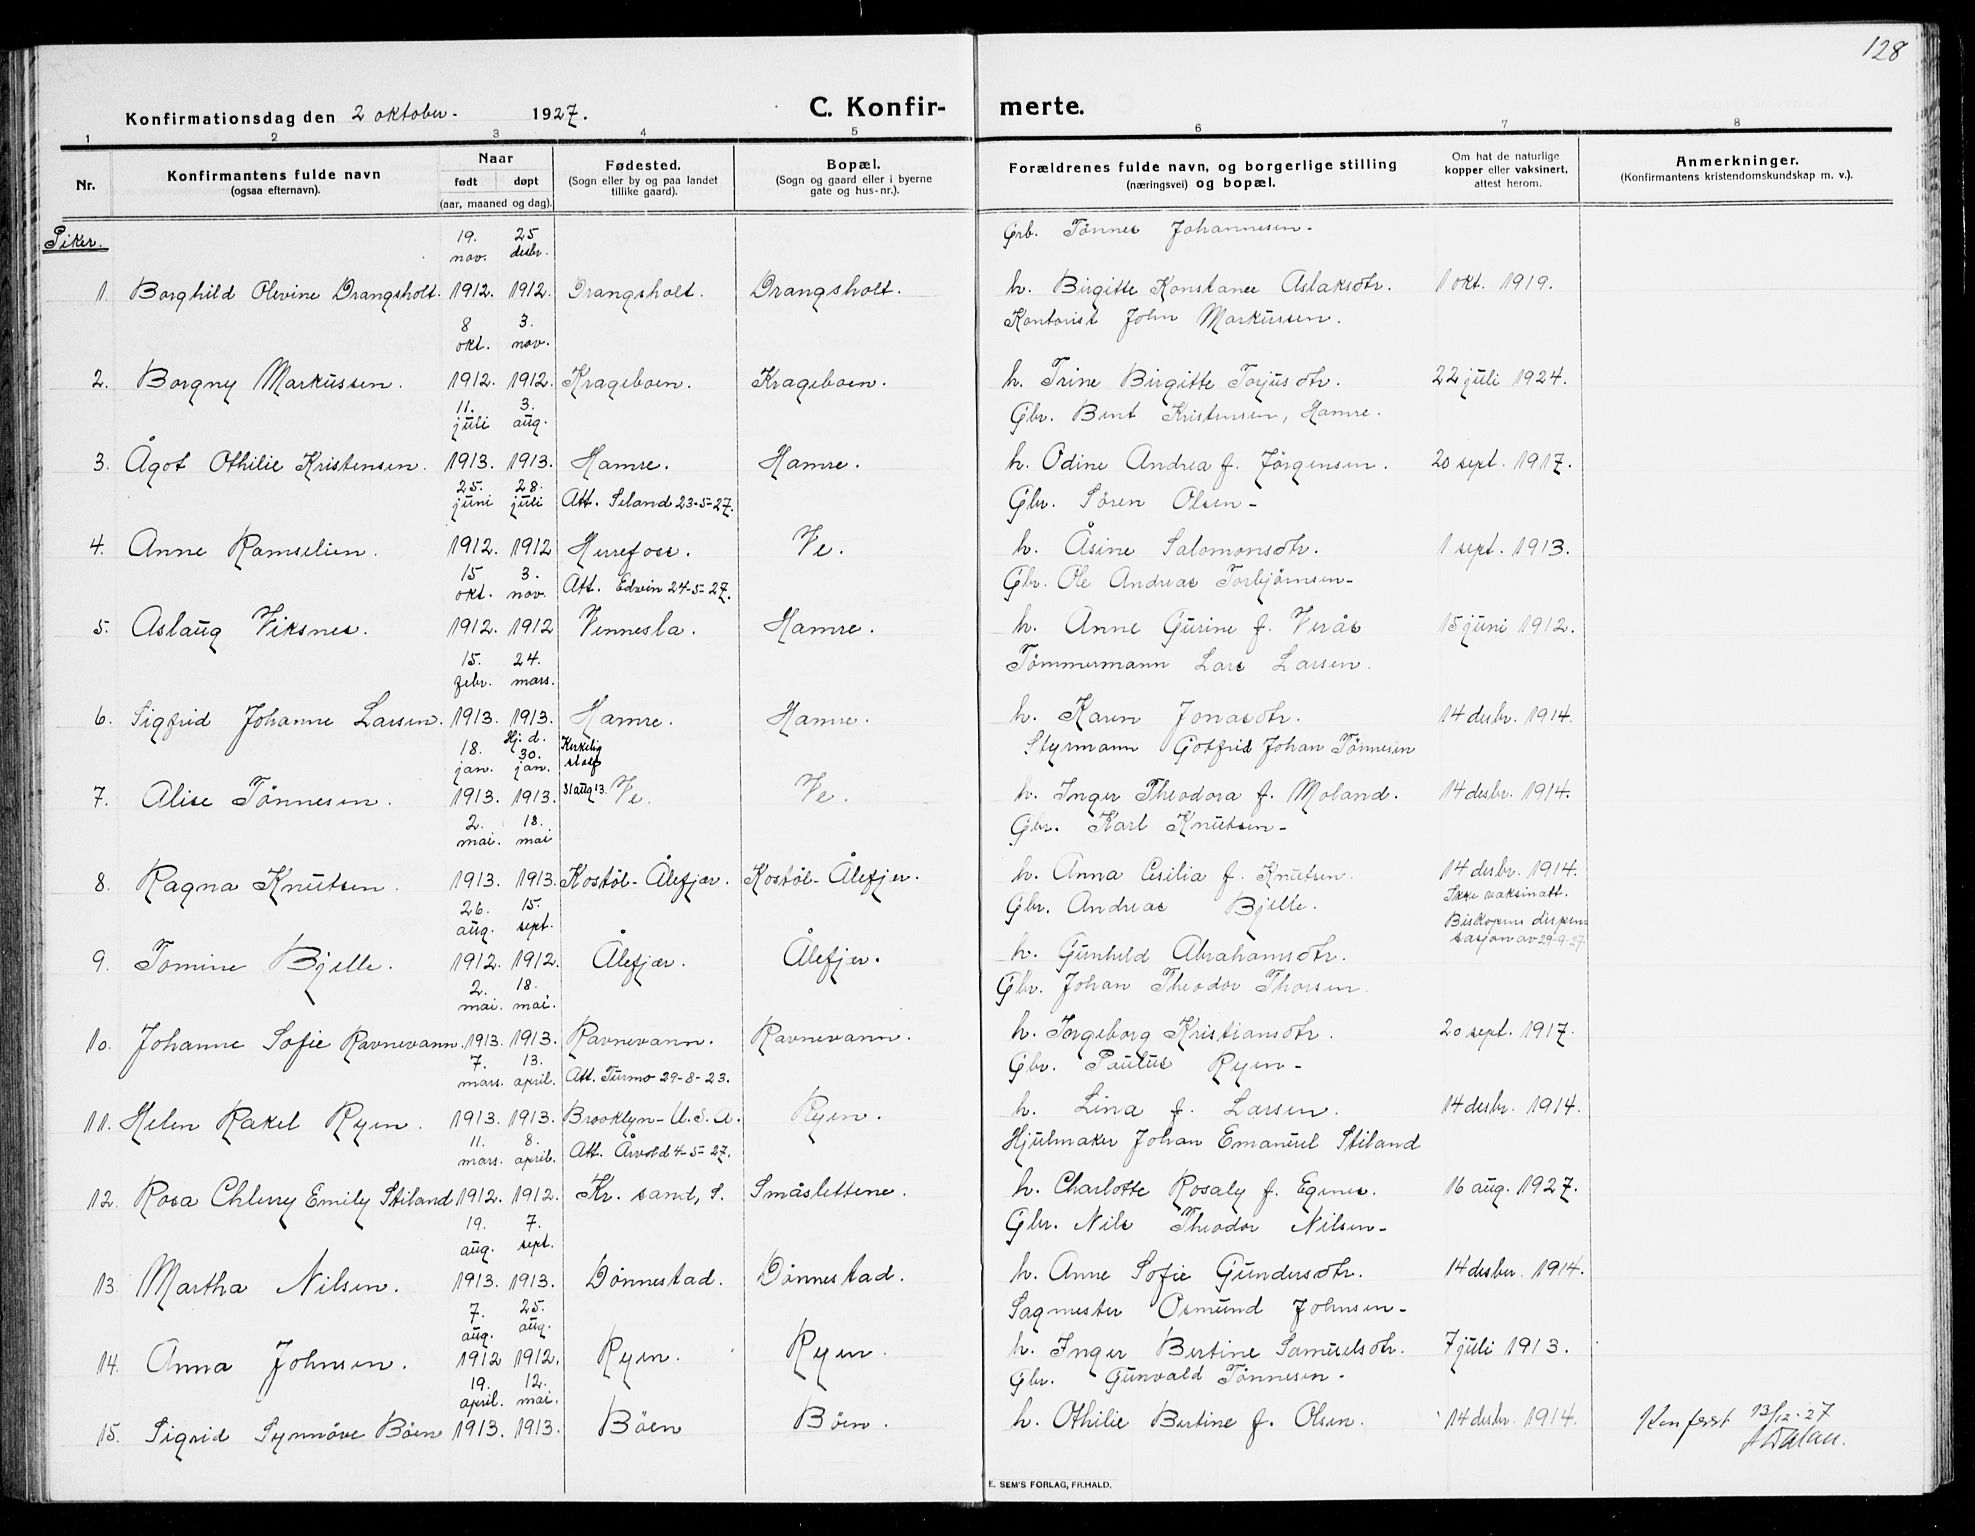 128
Konfirmationsdag den 2 oktober. 1927. C. Konfir- merte.
1 2 3 4 5 6 7 8
Nr. Konfirmantens fulde navn (ogsaa efternavn). Naar født døpt (aar, maaned og dag). Fødested. (Sogn eller by og paa landet tillike gaard). Bopæl. (Sogn og gaard eller i byerne gate og hus-nr.). Forældrenes fulde navn, og borgerlige stilling (næringsvei) og bopæl. Om hat de naturlige kopper eller vaksinert, attest herom. Anmerkninger. (Konfirmantens kristendomskundskap m. v.).
Piker. 19. nov. 25 desbr. Grb. Tønnes Johannesen-
1. Borghild Olevine Drangsholt. 1912. 1912. Drangsholt. Drangsholt. h. Birgitte Konstance Aslaksdtr. 1 okt. 1919.
8 okt. 3. nov. Kontorist John Markussen.
2. Borgny Markussen. 1912. 1912. Krageboen. Krageboen. h. Trine Birgitte Torjusdtr. 22 juli 1924.
11. juli 3. aug. Gbr. Bent Kristensen, Hamre.
3. Ågot Othilie Kristensen. 1913. 1913. Hamre. Hamre. h. Odine Andrea f. Jørgensen. 20 sept. 1917.
25. juni 28. juli Att. Seland 23-5-27. Gbr. Søren Olsen-
4. Anne Ramselien. 1912. 1912 Herefoss. Ve. h. Åsine Salomonsdtr. 1 sept. 1913.
15 okt. 3. nov. Att. Edvin 24-5-27. Gbr. Ole Andreas Torbjørnsen-
5. Aslaug Viksnes. 1912. 1912 Vennesla. Hamre. h. Anne Gurine f. Verås 15 juni 1912.
15. febr. 24. mars. Tømmermann Lars Larsen.
6. Sigfrid Johanne Larsen. 1913. 1913. Hamre. Hamre. h. Karen Jonasdtr. 14 desbr. 1914.
18. jan. Hj. d. 30. jan. Kirkelig stadf Styrmann Gotfrid Johan Tønnesen
7. Alise Tønnesen. 1913. 1913. 31 aug 13. Ve. Ve. h. Inger Theodora f. Moland. 14 desbr. 1914.
2. mai. 18. mai Gbr. Karl Knutsen-
8. Ragna Knutsen. 1913. 1913. Kostøl-Ålefjær. Kostøl-Ålefjer. h. Anna Cesilia f. Knutsen. 14 desbr. 1914.
26. aug. 15. sept. Gbr. Andreas Bjelle. Ikke vaksinatt. Biskopens dispensasjon av 29-9-27
9. Tomine Bjelle. 1912. 1912. Ålefjær. Ålefjær. h. Gunhild Abrahamsdtr.
2. mai. 18. mai. Gbr. Johan Theodor Thorsen.
10. Johanne Sofie Ravnevann. 1913. 1913. Ravnevann. Ravnevann. h. Ingeborg Kristiansdtr. 20 sept. 1917.
7. mars. 13. april. Att. Turmo 29-8-23. Gbr. Paulus Ryen-
11. Helen Rakel Ryen. 1913. 1913. Brooklyn-U.S.A. Ryen. h. Lina f. Larsen. 14 desbr. 1914.
11. mars. 8. april. Att. Årvold 4-5-27. Hjulmaker Johan Emanuel Stiland
12. Rosa Chlerry Emily Stiland 1912. 1912. Kr. sand, S. Småslettene. h. Charlotte Rosaly f. Egenes. 16 aug. 1927.
19. aug. 7. sept. Gbr. Nils Theodor Nilsen-
13. Martha Nilsen. 1913. 1913. Dønnestad. Dønnestad. h. Anne Sofie Gundersdtr. 14 desber. 1914.
7. aug. 25. aug. Sagmester Osmund Johnsen-
14. Anna Johnsen. 1912 1912. Ryen. Ryen. h. Inger Bertine Samuelsdtr. 7 juli 1913.
19. april. 12. mai. Gbr. Gunvald Tønnesen-
15. Sigrid Synnøve Bøen 1913. 1913. Bøen Bøen. h. Othilie Bertine f. Olsen. 14 desbr. 1914. Konferert 13/12-27
E. SEM'S FORLAG, FR.HALD.